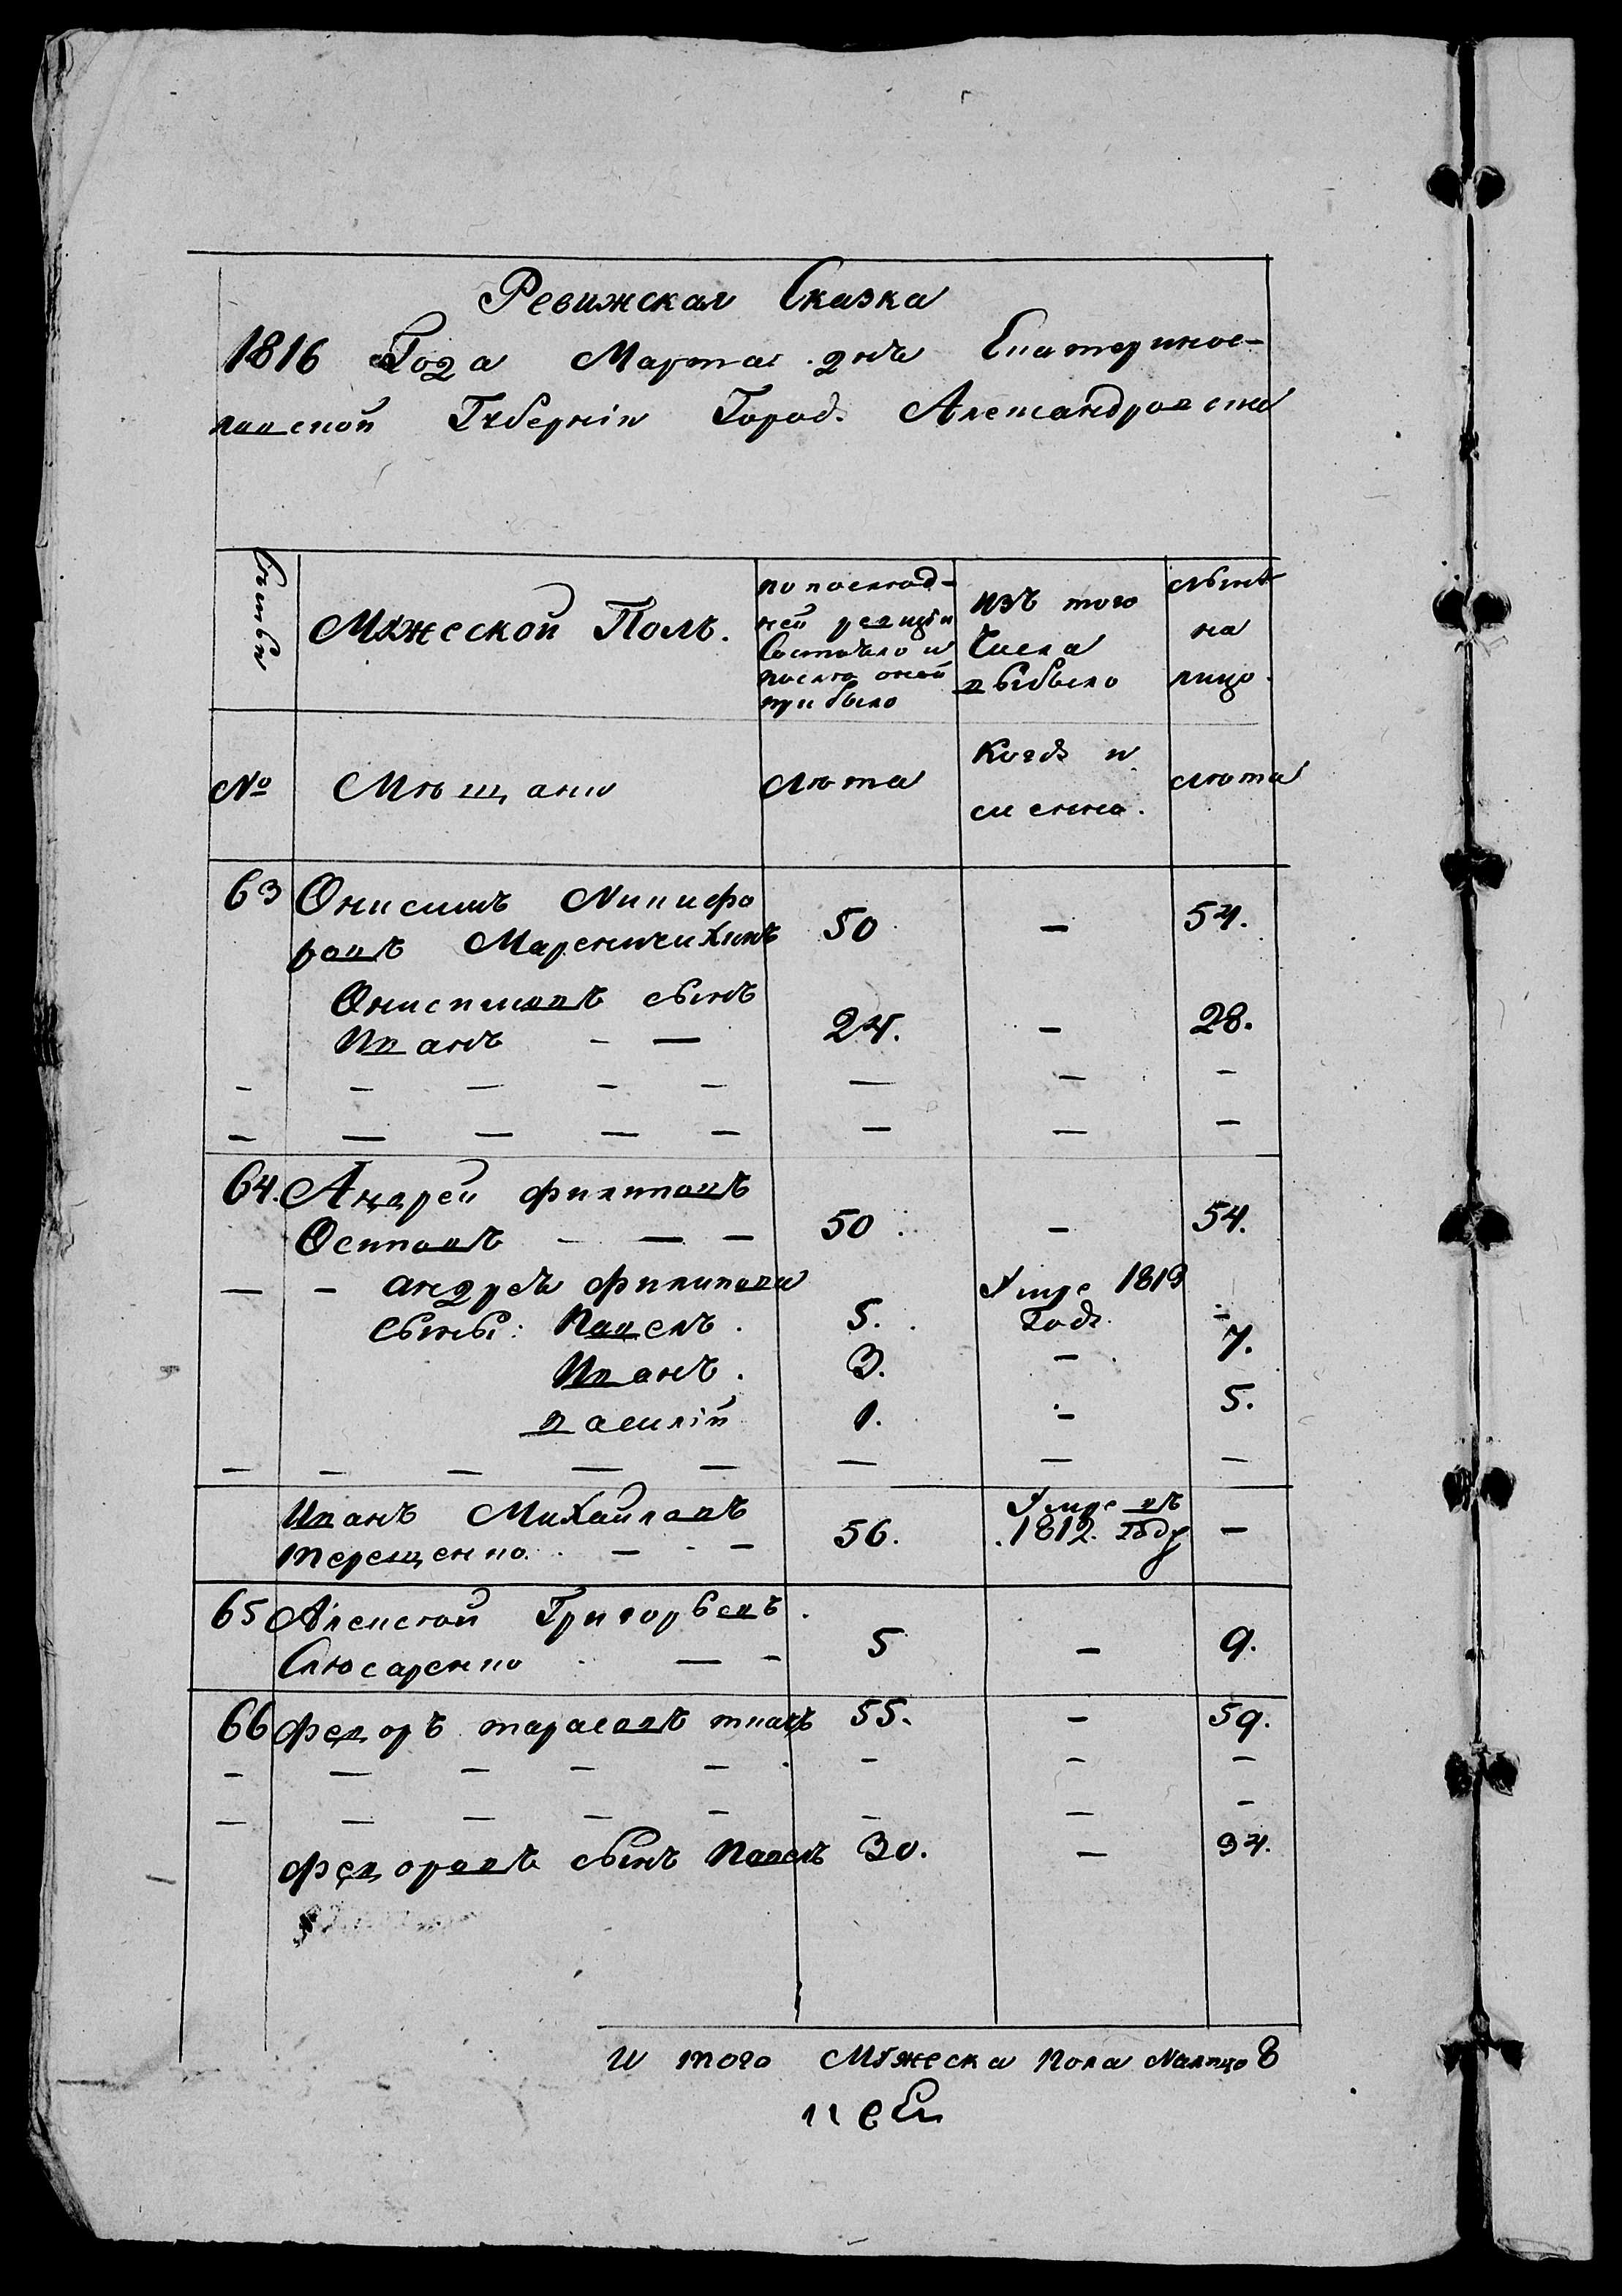 Ревижская Сказка
1816 Года Марта дня Екатеринос-
лавской Губерніи Город. Александровска
Семьи
Мужеской Полъ.
по послѣд-
ней ревизіи
Состояло и
послѣ оной
прибыло
изъ того
Числа
выбыло
нынѣ
на
лицо.
№
Мѣщани
лѣта
Когда и
лѣта
63 Онисимъ Никифо
ровъ 50 — 54.
Онисимовъ сынъ
Иванъ - — 24. — 28.
- - — - - — — -
- — — — - — — —
64. Андрей Филиповъ
Осиповъ - — — 50 — 54.
— - андрея Филипова Умре 1813
Сыны: Павелъ. 5. Года. -
Иванъ. 3. — 7.
Василій 1. — 5.
— — — — — — — —
Иванъ Михайловъ Умре въ
терещенко. — - — 56. 1812. Году —
65 Алексей Григорьевъ.
Слюсаренко — - 5 — 9.
66 Федоръ тарасовъ ткачъ 55. — 59.
- — - - - - - -
— — — — - - — -
Федоровъ сынъ Павелъ 30. — 34.
И того Мужеска пола Налицо 8